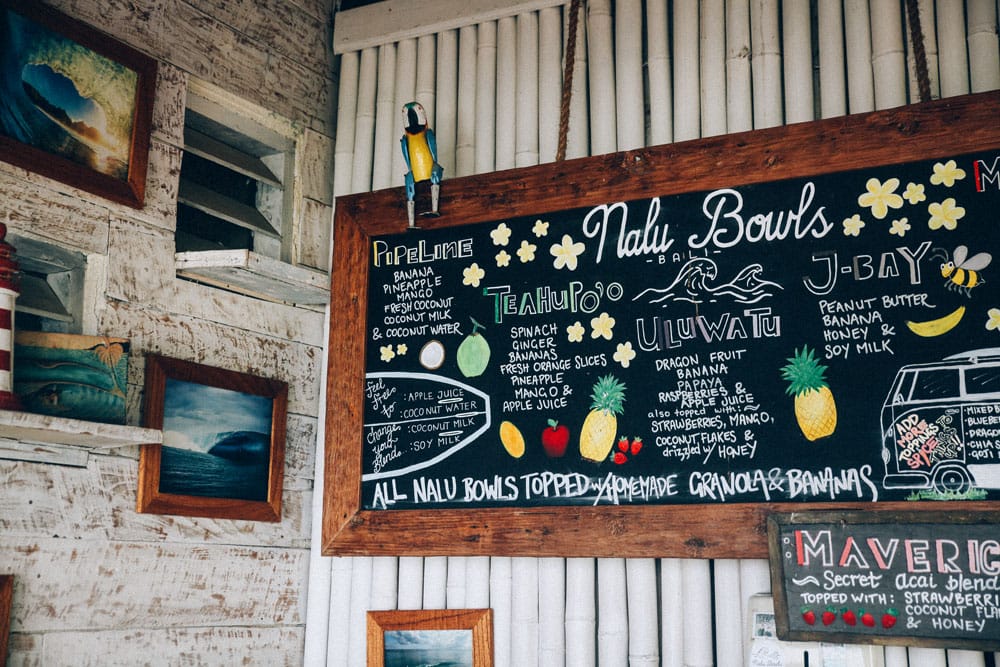 Nalu Bowls
- BALI -
M
PIPELINE
BANANA
PINEAPPLE
MANGO
FRESH COCONUT
COCONUT MILK
& COCONUT WATER
TEAHUPO'O
SPINACH
GINGER
BANANAS
FRESH ORANGE SLICES
PINEAPPLE
MANGO &
APPLE JUICE
ULUWATU
DRAGON FRUIT
BANANA
PAPAYA
RASPBERRIES &
APPLE JUICE
also topped with:~
STRAWBERRIES, MANGO,
COCONUT FLAKES &
drizzled w/ HONEY
J-BAY
PEANUT BUTTER
BANANA
HONEY &
SOY MILK
feel
free
to
change
your
blends
: APPLE JUICE
: COCONUT WATER
: COCONUT MILK
: SOY MILK
ADD
MORE
TOPPINGS
STYLE
•MIXED
BLUEBE
•DRAGO
•CHIA S
•GOJI
ALL NALU BOWLS TOPPED w/HOMEMADE GRANOLA & BANANAS
MAVERIC
~ Secret acai blend
TOPPED WITH: STRAWBERRI
COCONUT FLA
& HONEY